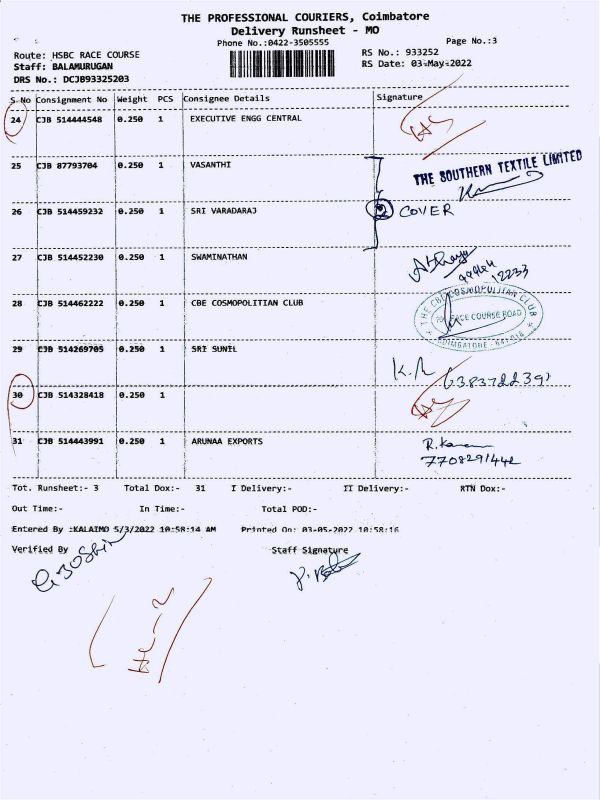 THE PROFESSIONAL COURIERS, Coimbatore
Delivery Runsheet - MO
Phone No.:0422-3505555
Page No.:3
Route: HSBC RACE COURSE
RS No.: 933252
Staff: BALAMURUGAN
RS Date: 03-May-2022
DRS No.: DCJB93325203
S.No Consignment No Weight PCS Consignee Details Signature
24 CJB 514444548 0.250 1 EXECUTIVE ENGG CENTRAL
25 CJB 87793704 0.250 1 VASANTHI
THE SOUTHERN TEXTILE LIMITED
26 CJB 514459232 0.250 1 SRI VARADARAJ
COVER
27 CJB 514452230 0.250 1 SWAMINATHAN
12233
28 CJB 514462222 0.250 1 CBE COSMOPOLITIAN CLUB
THE CBE COSMOPOLITAN CLUB
RACE COURSE ROAD
COIMBATORE - 641 018
29 CJB 514269705 0.250 1 SRI SUNIL
30 CJB 514328418 0.250 1
31 CJB 514443991 0.250 1 ARUNAA EXPORTS
7708291442
Tot. Runsheet:- 3 Total Dox:- 31 I Delivery:- II Delivery:- RTN Dox:-
Out Time:- In Time:- Total POD:-
Entered By :KALAIMO 5/3/2022 10:58:14 AM Printed On: 03-05-2022 10:58:16
Verified By Staff Signature